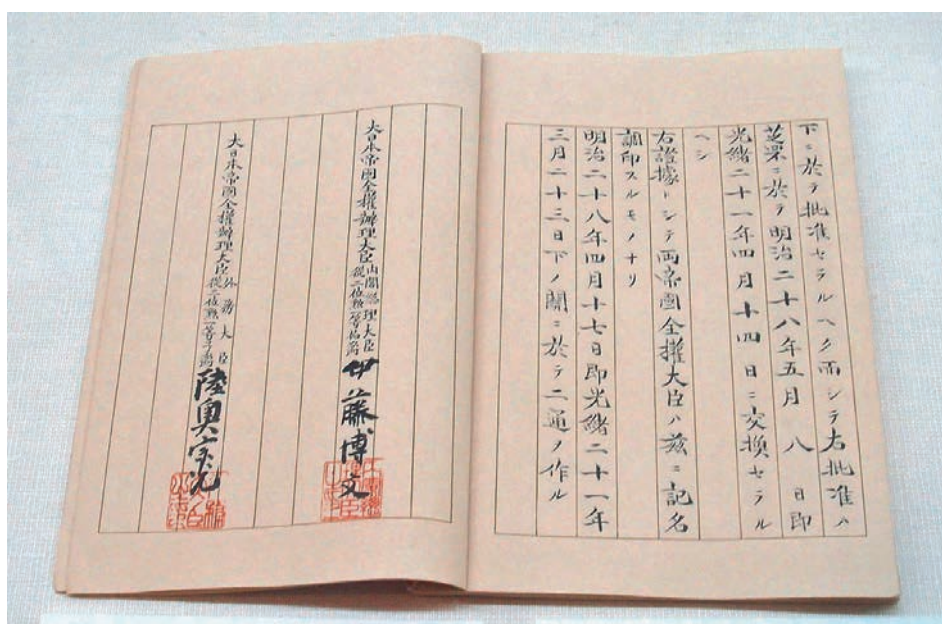 下ニ於テ批准セラルヘク而シテ右批准ハ
芝罘ニ於テ明治二十八年五月八日即
光緒二十一年四月十四日ニ交換セラル
ヘシ
右證據トシテ両帝國全權大臣ハ茲ニ記名
調印スルモノナリ
明治二十八年四月十七日即光緒二十一年
三月二十三日下ノ關ニ於テ二通ヲ作ル
大日本帝國全權辦理大臣内閣總理大臣從二位勲一等伯爵伊藤博文
大日本帝國全權辦理大臣外務大臣從二位勲一等子爵陸奥宗光